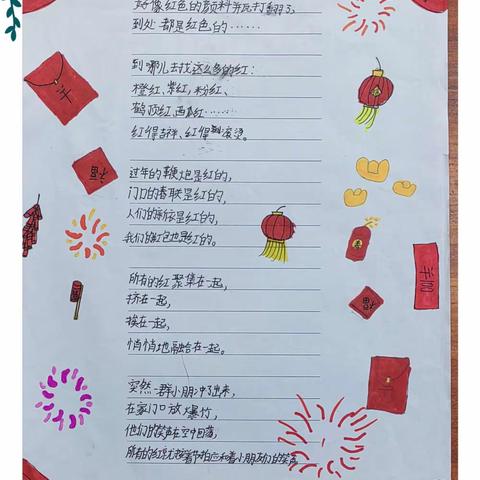 好像红色的颜料并瓦打翻了，
到处都是红色的……
到哪儿去找这么多的红：
橙红、紫红，粉红、
鹤顶红，西瓜红……
红得吉祥、红得滚烫。
过年的鞭炮是红的，
门口的春联是红的，
人们的新衣是红的，
我们的红包也是红的。
所有的红聚集在一起，
挤在一起，
挨在一起，
悄悄地融合在一起。
突然一群小朋冲了出来，
在家门口放爆竹，
他们的笑声在空中回荡，
所有的红
着小朋友们的笑声
福
福